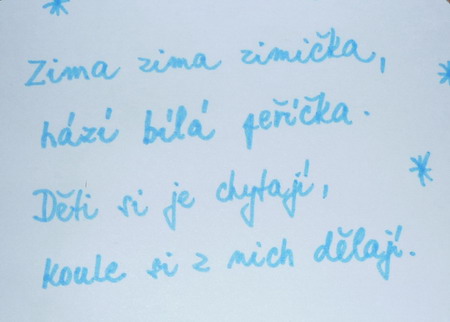 Zima zima zimička,
hází bílá peříčka.
Děti si je chytají,
koule si z nich dělají.